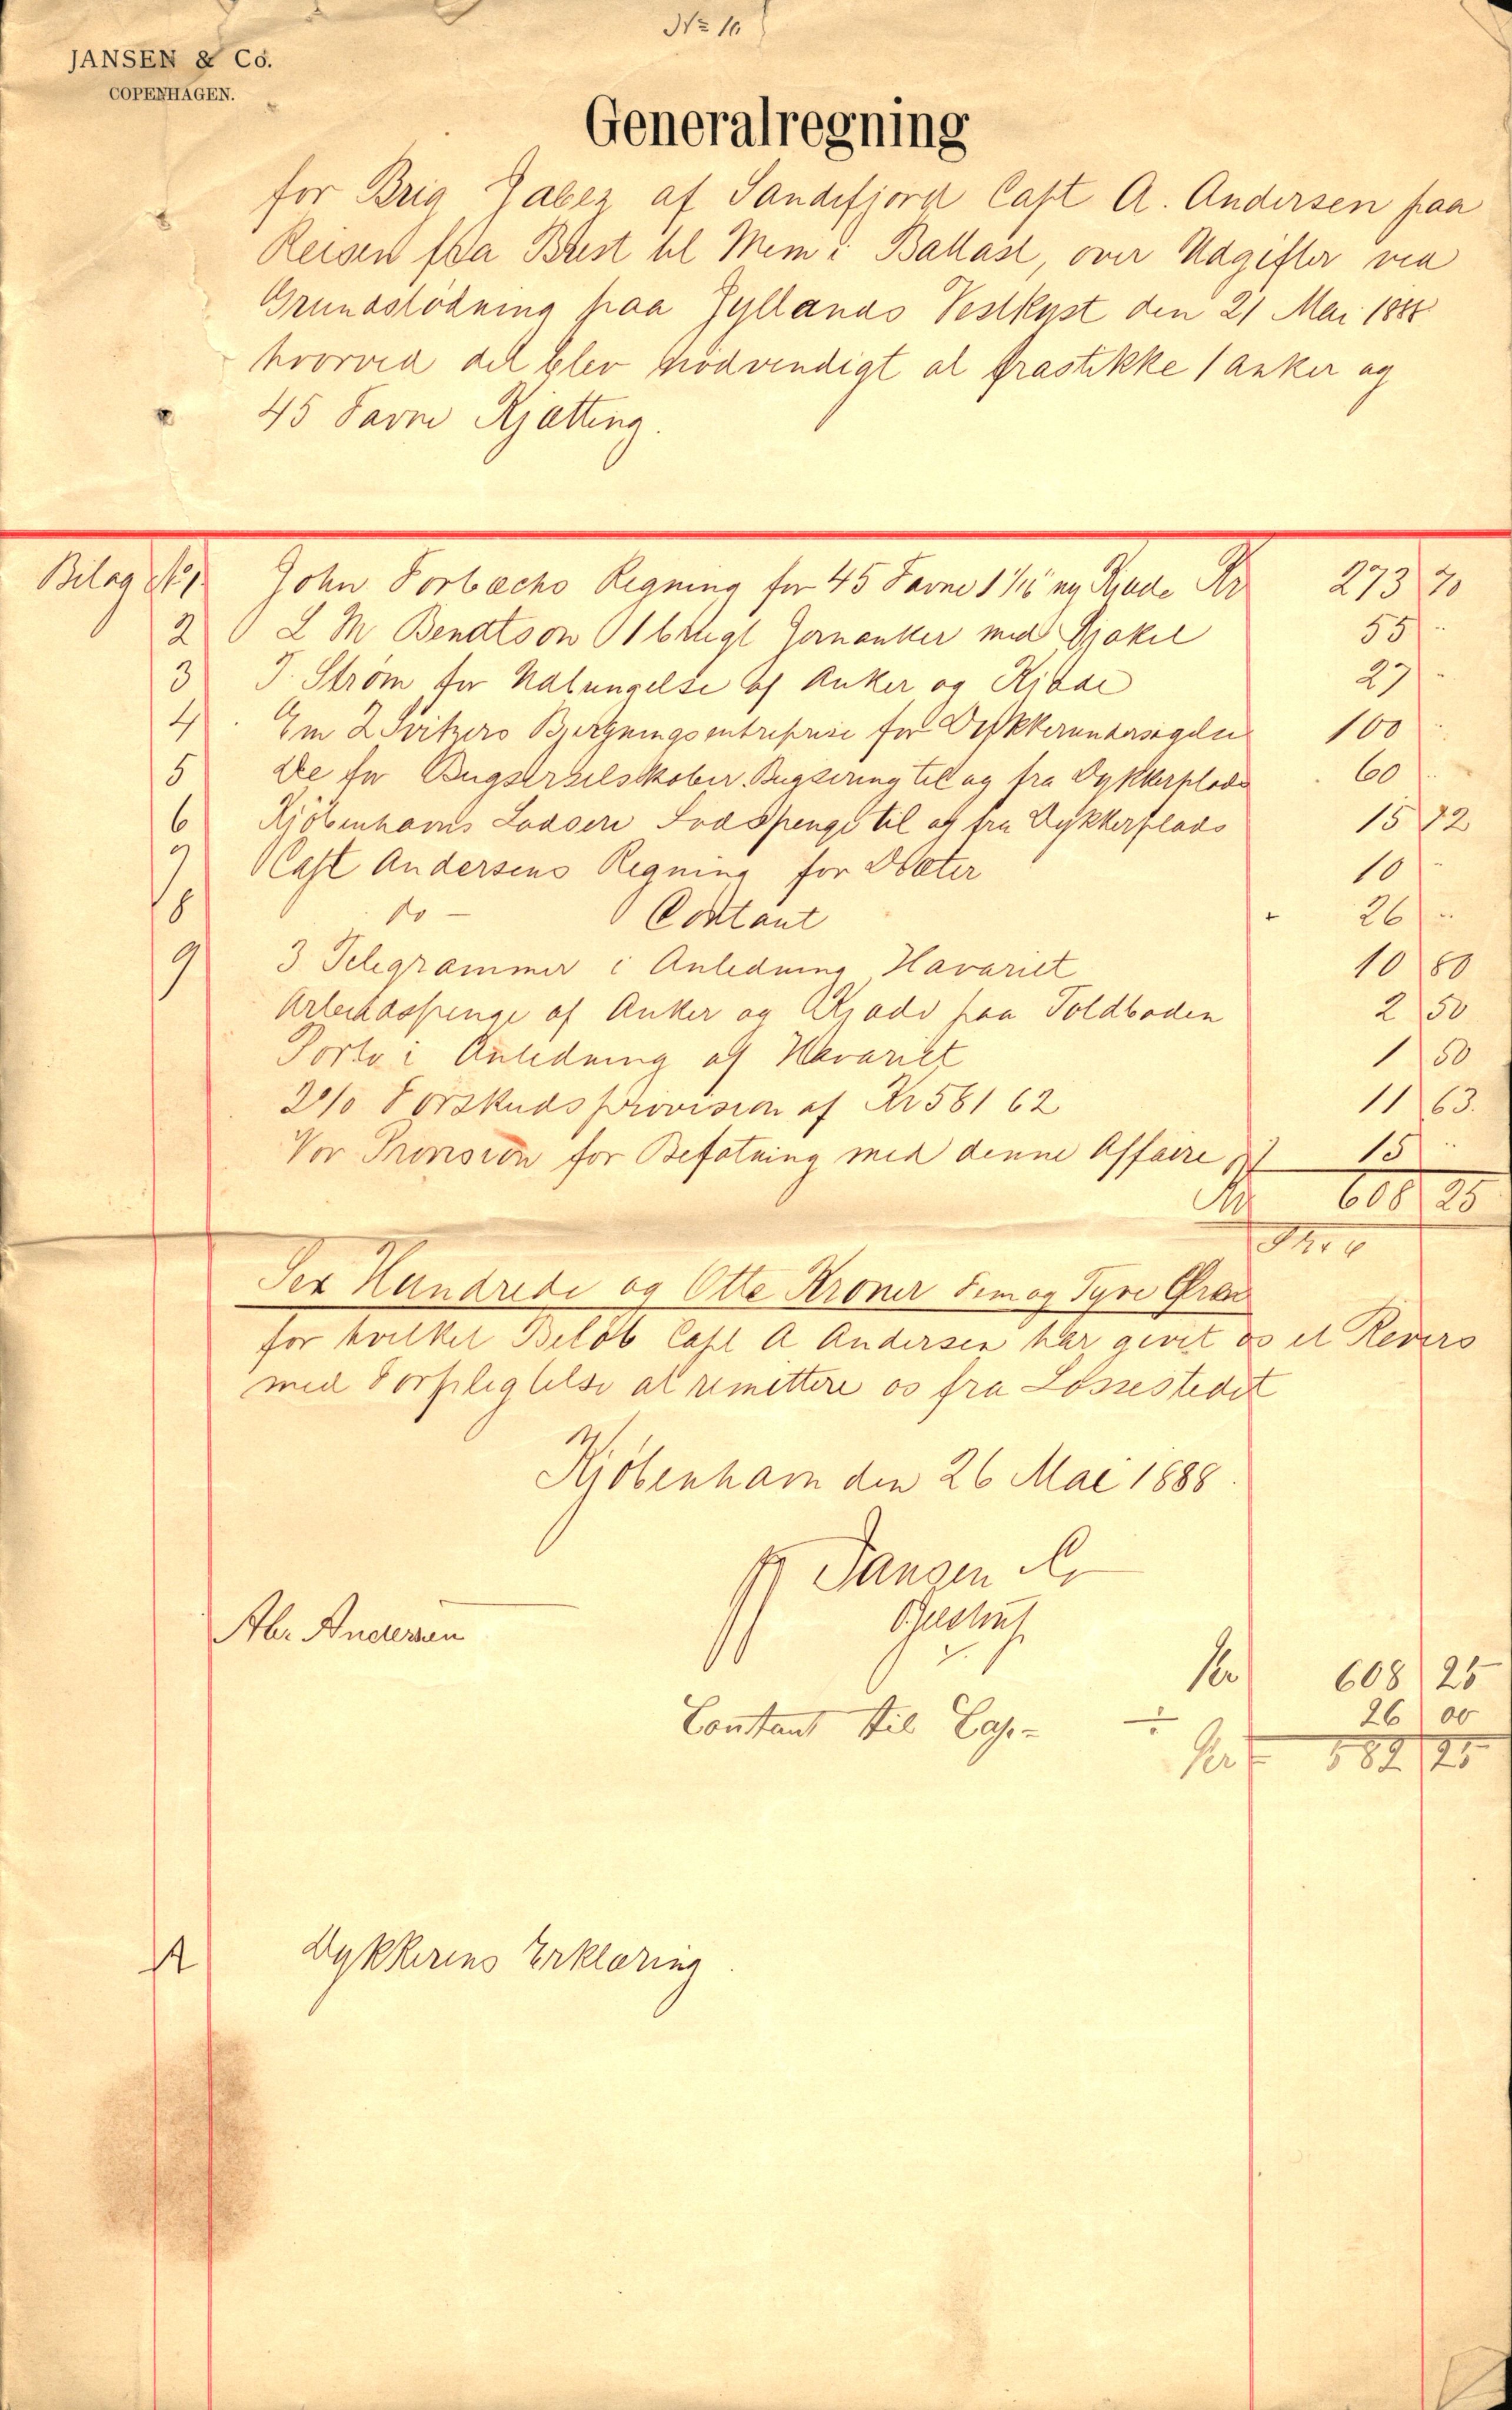 No 10
JANSEN & Co.
COPENHAGEN.
Generalregning
for Brig Jabez af Sandefjord Capt A. Andersen paa
Reisen fra Brest til Mem i Ballast, over Udgifter ved
Grundstödning paa Jyllands Vestkyst den 21 Mai 1888
hvorved det blev nödvendigt at frastikke 1 Anker og
45 Favne Kjætting.
Bilag No 1 John Forbachs Regning for 45 Favne 1 1/16 ny Kjæde Kr 273 70
2 L M Bendtson 1 brugt Jernanker med Sjækel 55 "
3 J. Ström for Udbringelse af Anker og Kjæde 27 "
4 Em Z Svitzers Bjergningsentreprise for Dykkerundersögelse 100 "
5 De for Bugserselskaber. Bugsering til og fra Dykkerplads 60 "
6 Kjöbenhavns Lodseri Lodspenge til og fra Dykkerplads 15 12
7 Capt Andersens Regning for Diæter 10 "
8 do - Contant 26 "
9 3 Telegrammer i Anledning Havariet 10 80
Arbeidspenge af Anker og Kjæde paa Toldboden 2 50
Porto i Anledning af Havariet 1 50
2% Forskudsprovision af Kr 581 62 11 63.
Vor Provision for Befatning med denne Affaire 15 "
Kr 608 25
Sex Hundrede og Otte Kroner Fem og Tyve Öre
for hvilket Belöb Capt A Andersen har givet os et Revers
med Forpligtelse at remittere os fra Lossestedet
Kjöbenhavn den 26 Mai 1888.
pp Jansen & Co
Ab. Andersen
Kr 608 25
Contant til Cap.- ÷ 26 00
Kr 582 25
A Dykkerens Erklæring.